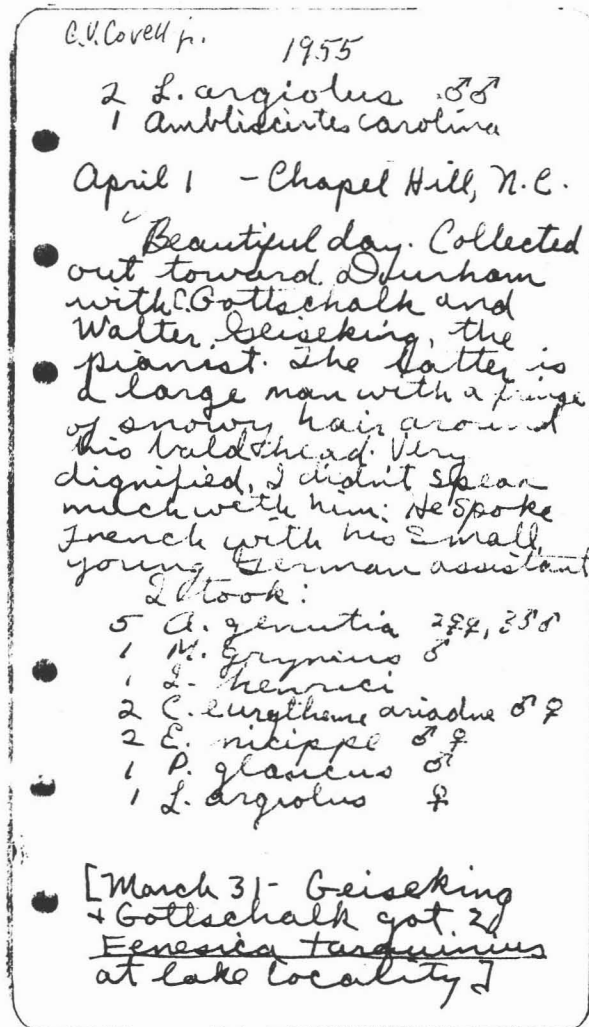 C.V. Covell jr.
1955
2 L. argiolus ♂♂
1 Ambliscirtes carolina
April 1 - Chapel Hill, N.C.
Beautiful day. Collected
out toward Durham
with C. Gottschalk and
Walter Geiseking, the
pianist. The latter is
a large man with a fringe
of snowy hair around
his bald head. Very
dignified, I didn't speak
much with him. He spoke
French with his small,
young German assistant
I took:
5 A. genutia 2♀♀, 3♂♂
1 M. grynius ♂
1 I. henrici
2 C. eurytheme ariadne ♂ ♀
2 E. nicippe ♂ ♀
1 P. glaucus ♂
1 L. argiolus ♀
[March 31 - Geiseking
+ Gottschalk got 2
Fenesica tarquinius
at lake locality]